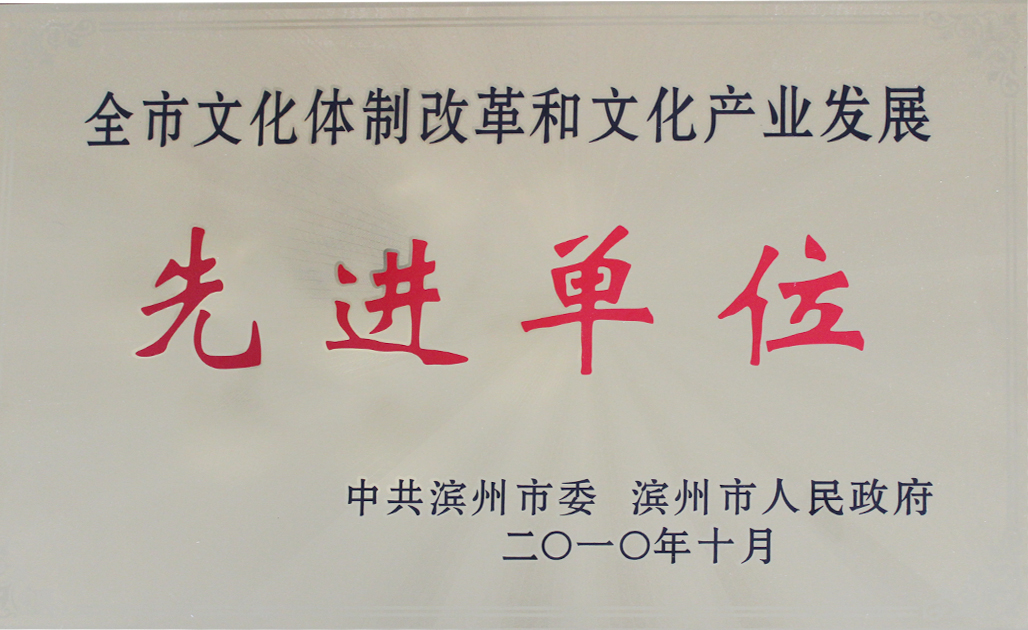 全市文化体制改革和文化产业发展
先进单位
中共滨州市委 滨州市人民政府
二〇一〇年十月